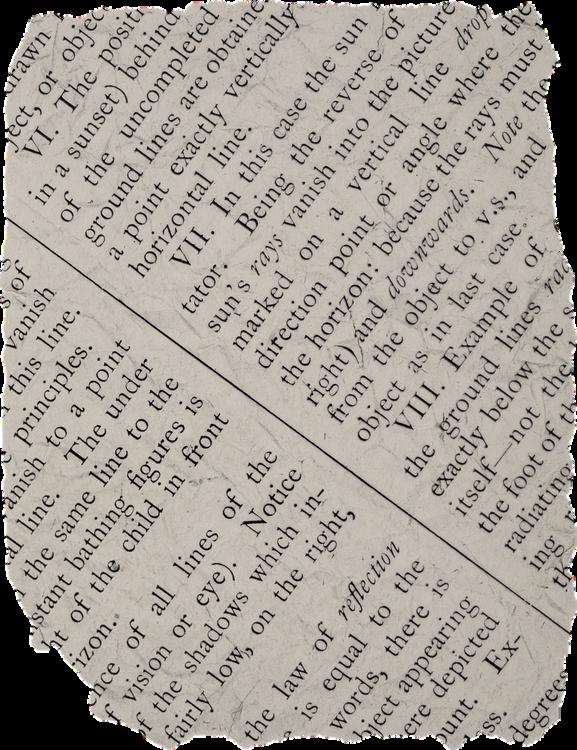 drawn
ject, or objec
VI. The positi
in a sunset) behind
of the uncompleted
ground lines are obtain
a point exactly vertically
horizontal line.
VII. In this case the sun
tator. Being the reverse of
sun's rays vanish into the picture
marked on a vertical line drop
direction point or angle where the
the horizon: because the rays must
right) and downwards. Note the
from the object to v.s., and
object as in last case.
VIII. Example of
the ground lines rad
exactly below the s
itself—not the
the foot of th
radiating
ing
th
s of
vanish
this line.
principles.
anish to a point
al line. The under
the same line to the
stant bathing figures is
nt of the child in front
izon.
nce of all lines of the
f vision or eye). Notice
f the shadows which in-
fairly low, on the right,
the law of reflection
e is equal to the
words, there is
bject appearing
ere depicted
unt. Ex-
ss.
degrees